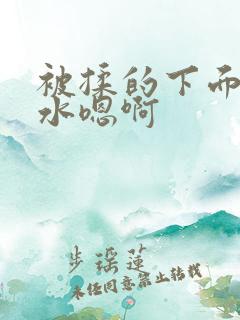 被揉的下面
水嗯啊
步璢莲
未经同意禁止转载